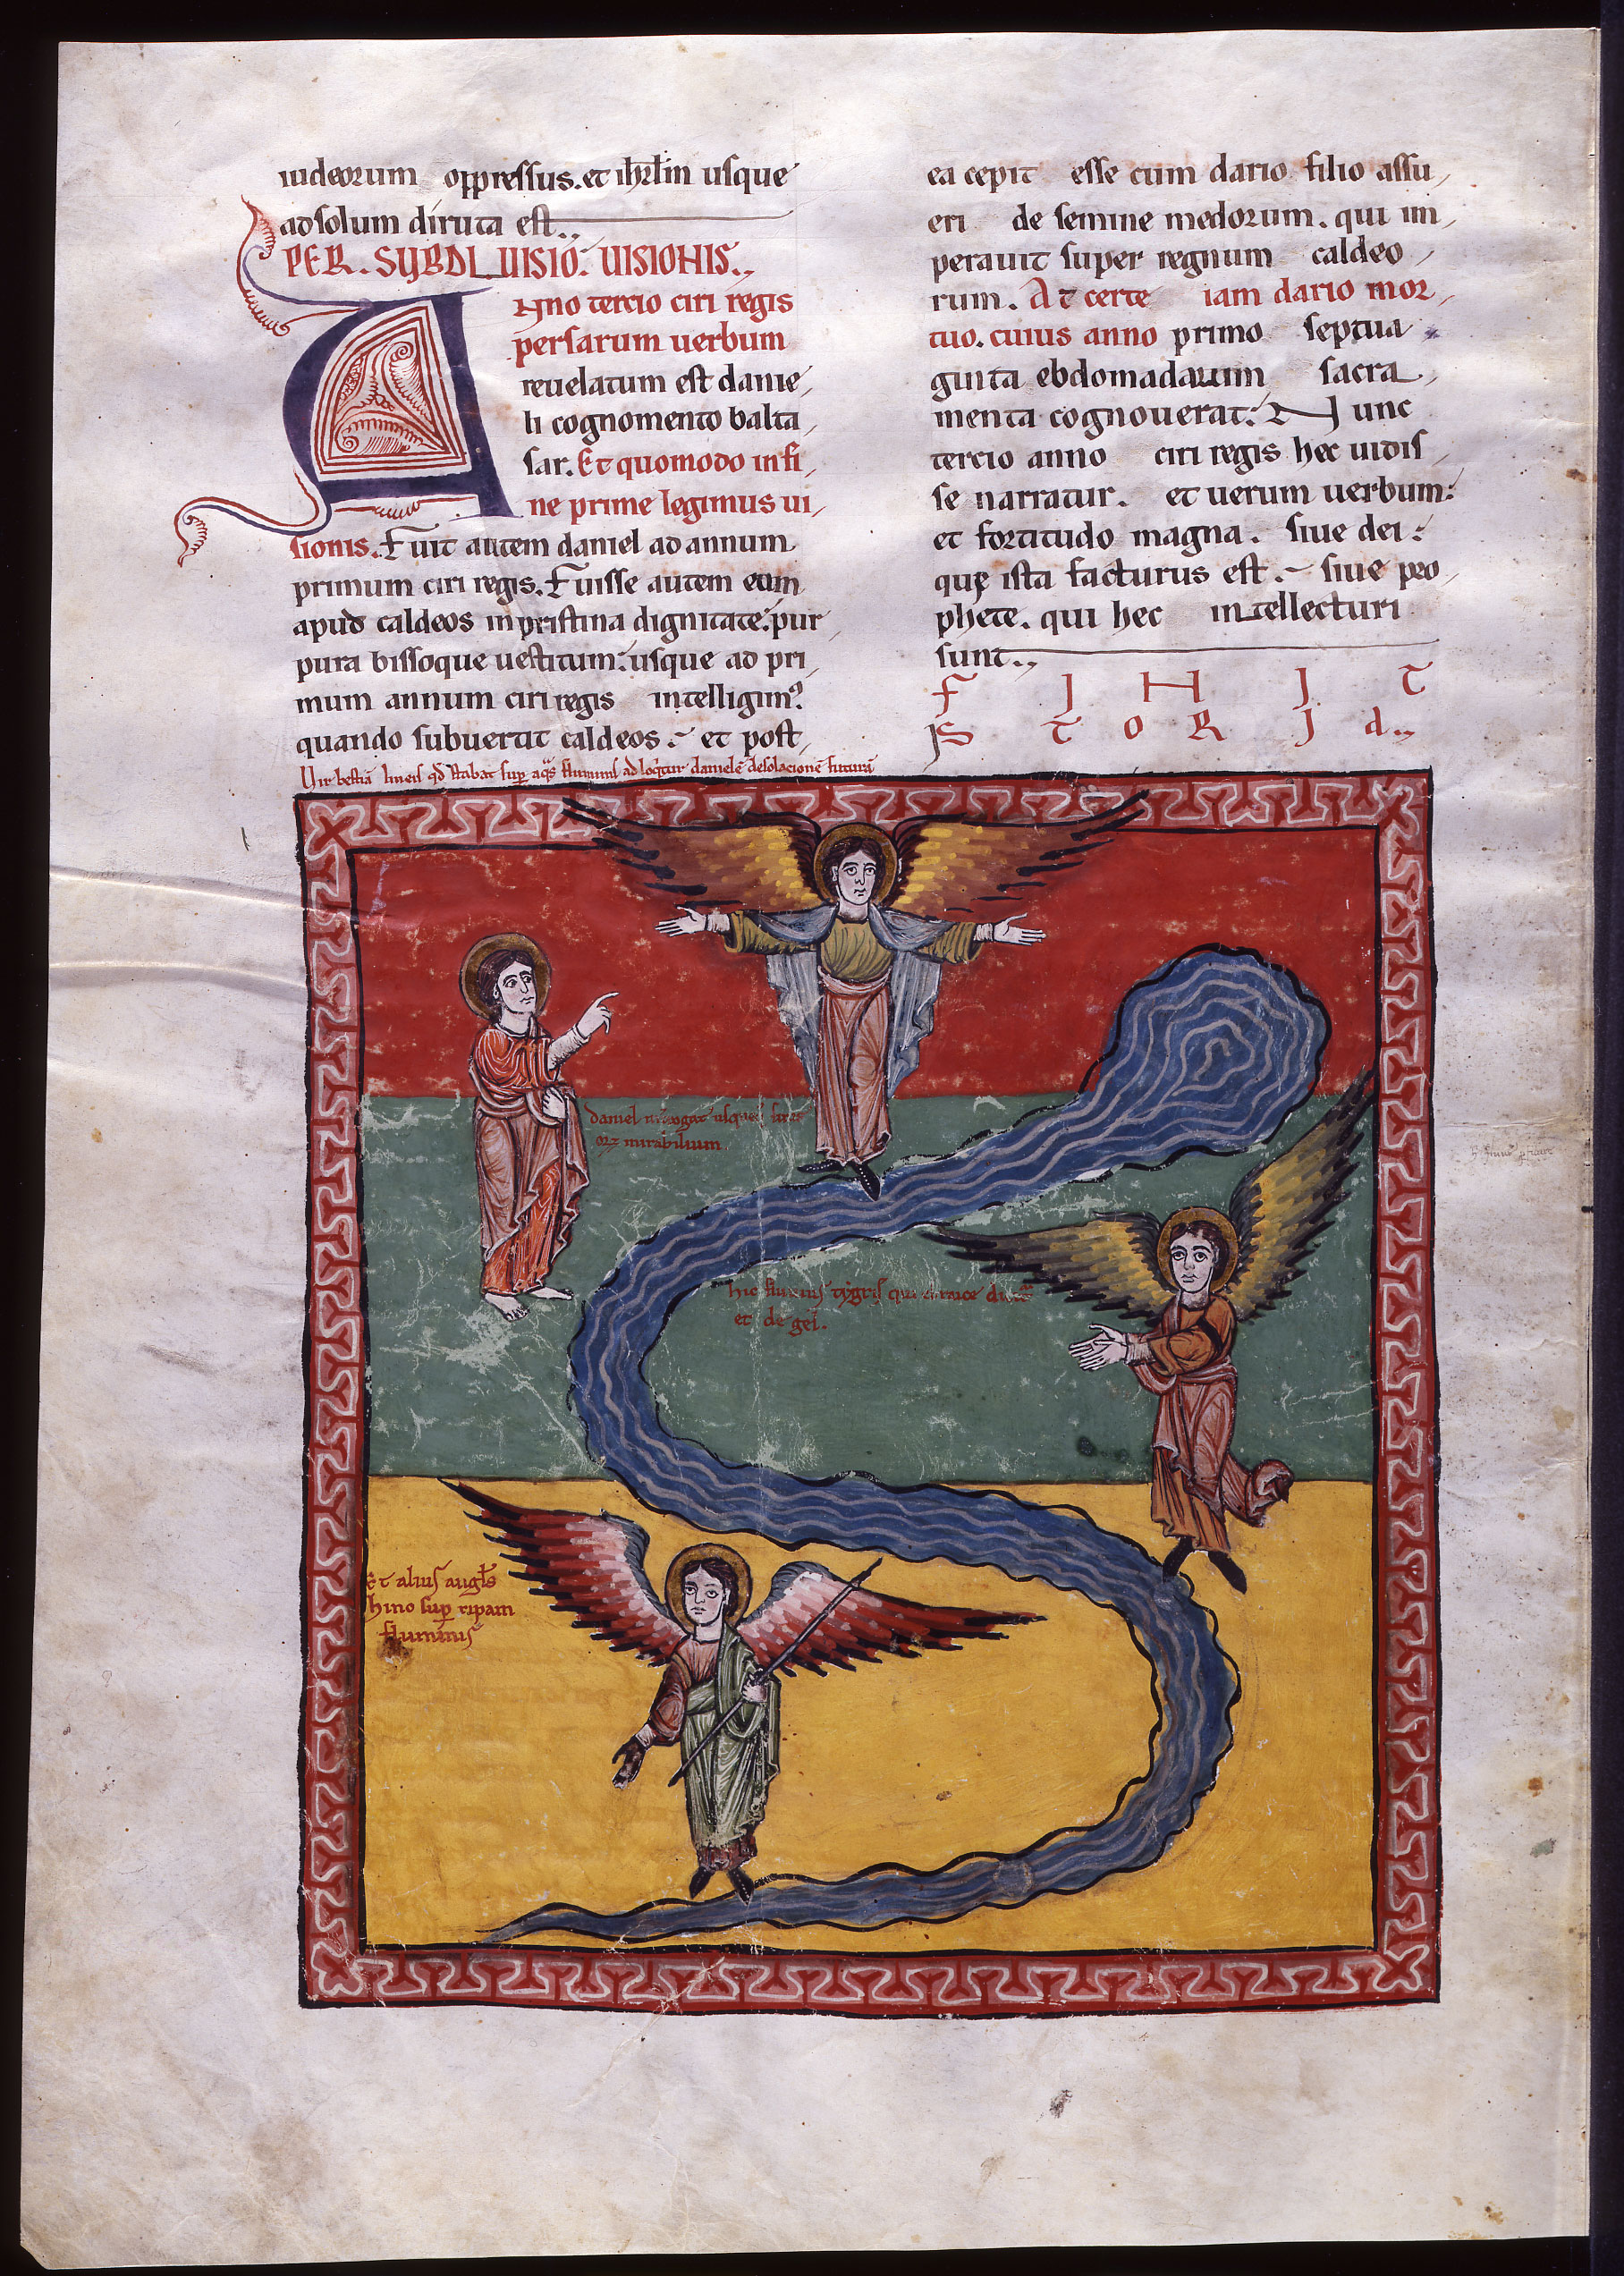 iudeorum oppressus. et ihrl̄m usque
ad solum diruta est..
PER. SUBDI UISIO: UISIONIS..
Anno tercio ciri regis
persarum uerbum
reuelatum est danie,
li cognomento balta,
sar. Et quomodo in fi,
ne prime legimus ui,
sionis. Fuit autem daniel ad annum
primum ciri regis. Fuisse autem eum
apud caldeos in pristina dignitate: pur,
pura bissoque uestitum: usque ad pri,
mum annum ciri regis intelligimꝰ
quando subuertit caldeos: et post,
ea cepit esse cum dario filio assu,
eri de semine medorum. qui im,
perauit super regnum caldeo,
rum. At certe iam dario mor,
tuo. cuius anno primo septua
ginta ebdomadarum sacra,
menta cognouerat: Nunc
tercio anno ciri regis hec uidis,
se narratur. et uerum uerbum:
et fortitudo magna. siue dei:
quę ista facturus est. siue pro,
phete. qui hec intellecturi
sunt..
F I N I T
I S T O R I A..
Uir lineis qd̄ stabat sup̄ aq̄s fluminis daniele desolacione futura
daniel usque
mirabilium.
hic fluuius tygris qui
et de gel.
Et alius angl̄s
hinc sup̄ ripam
fluminis